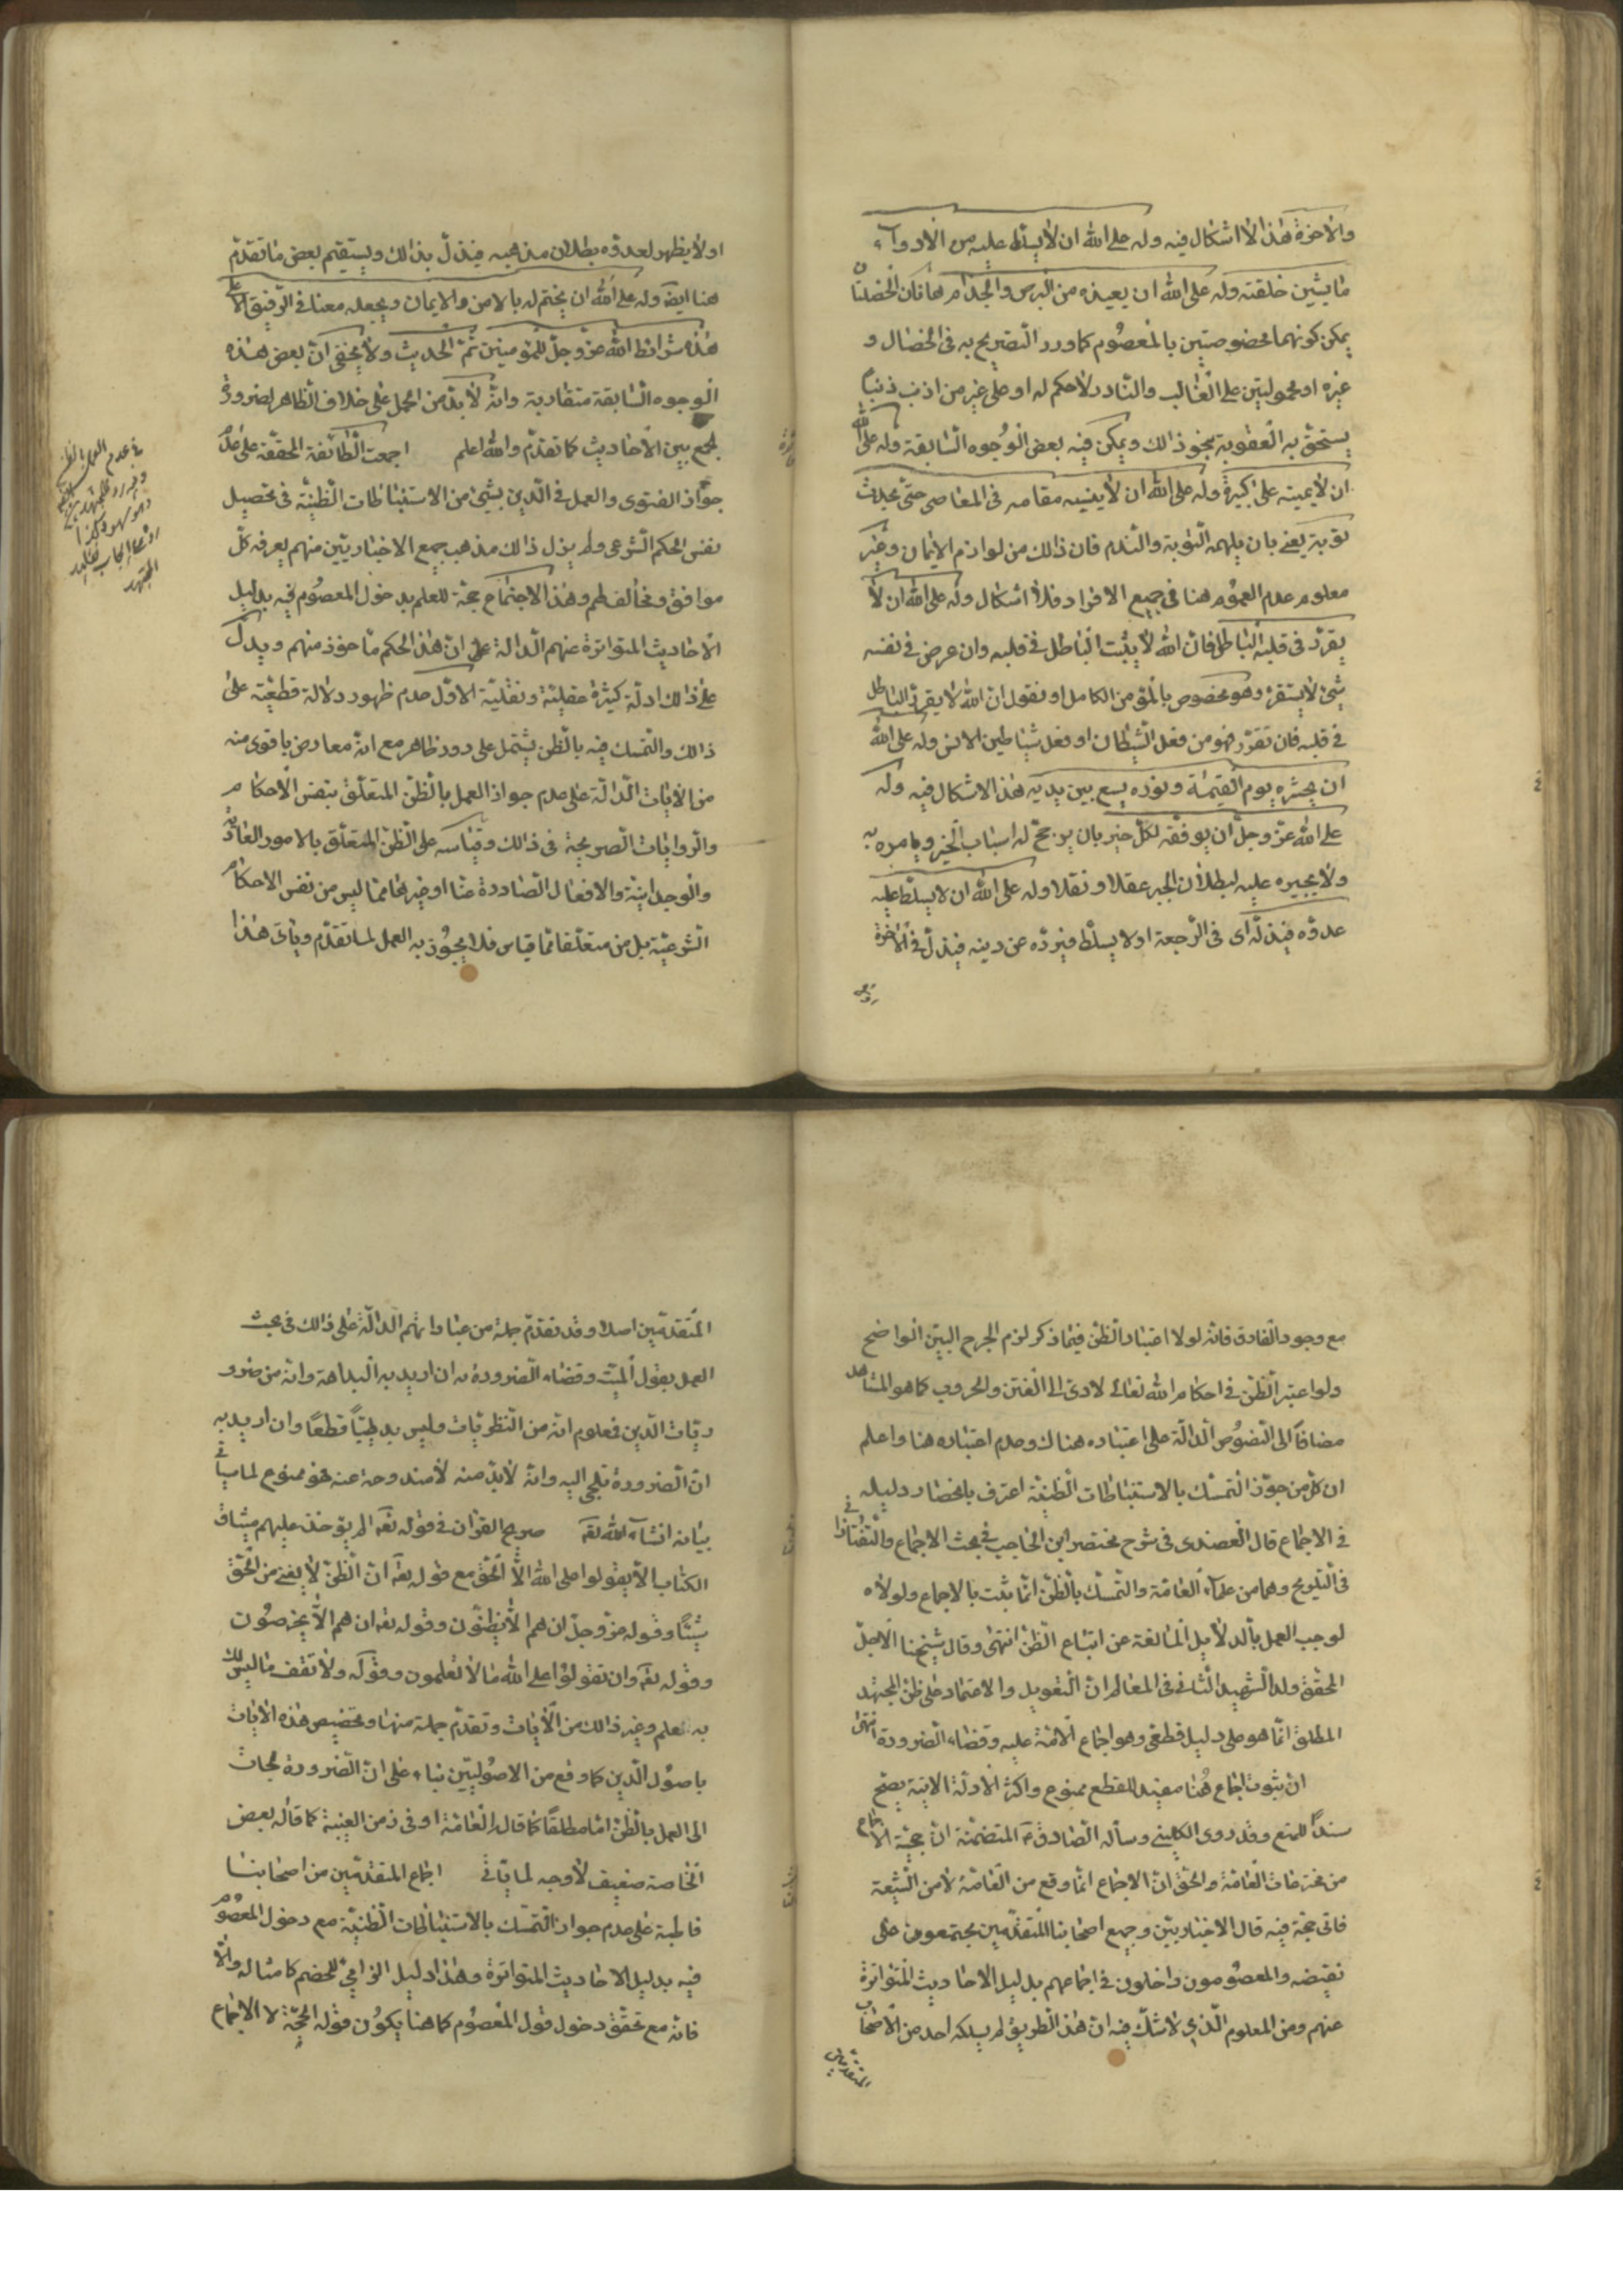 والاخرة هذا لا اشكال فيه وله على الله ان لا يسلط عليه من الادواء
ما يشين خلقته وله على الله ان يعيذه من البرص والجذام هاتان الخصلتان
يمكن كونهما مخصوصتين بالمعصوم كما ورد التصريح به فى الخصال و
غيره او محمولتين على الغالب والنادر لا حكم له او على غير من اذنب ذنبا
يستحق به العقوبة بنحو ذلك ويمكن فيه بعض الوجوه السابقة وله على الله
ان لا يميته على كبيرة وله على الله ان لا ينسيه مقامه فى المعاصى حتى يحدث
توبة يعنى بان يلهمه التوبة والندم فان ذلك من لوازم الايمان وغير
معلوم عدم العموم هنا فى جميع الافراد فلا اشكال وله على الله ان لا
يقرر فى قلبه الباطل فان الله لا يثبت الباطل فى قلبه وان عرض فى نفسه
شئ لا يستقر وهو مخصوص بالمؤمن الكامل او نقول ان الله لا يقرر الباطل
فى قلبه فان تقرر فهو من فعل الشيطان او فعل شياطين الانس وله على الله
ان يحشره يوم القيمة ونوره يسع بين يديه هذا لا اشكال فيه وله
على الله عز وجل ان يوفقه لكل خير بان يرجح له اسباب الخير ويامره به
ولا يجبره عليه لبطلان الجبر عقلا ونقلا وله على الله ان لا يسلط عليه
عدوه فيذله اى فى الرجعة او لا يسلط فيرده عن دينه فيذل فى الاخرة
او لا يظهر لعدوه بطلان مذهبه فيذل بذلك ويستقيم بعض ما تقدم
هنا ايضا وله على الله ان يختم له بالامن والايمان ويجعله معنا فى الرفيق الاعلى
هذه شرائط الله عز وجل للمؤمنين تم الحديث ولا يخفى ان بعض هذه
الوجوه السابقة متقاربة وانه لا بد من الحمل على خلاف الظاهر لضرورة
لجمع بين الاحاديث كما تقدم والله اعلم اجمعت الطائفة المحقة على عدم
جواز الفتوى والعمل فى الدين بشئ من الاستنباطات الظنية فى تحصيل
نفس الحكم الشرعى ولم يزل ذلك مذهب جميع الاخباريين منهم يعرفه كل
موافق ومخالف لهم وهذا الاجتماع حجة للعلم بدخول المعصوم فيه بدليل
الاحاديث المتواترة عنهم الدالة على ان هذا الحكم ماخوذ منهم ويدل
على ذلك ادلة كثيرة عقلية ونقلية الاول عدم ظهور دلالة قطعية على
ذلك والتمسك فيه بالظن يشتمل على دور ظاهر مع انه معارض باقوى منه
من الايات الدالة على عدم جواز العمل بالظن المتعلق بنفس الاحكام
والروايات الصريحة فى ذلك وقياسه على الظن المتعلق بالامور العادية
والوجدانية والافعال الصادرة عنا او غيرها مما ليس من نفس الاحكام
الشرعية بل من متعلقاتها قياس فلا يجوز به العمل لما تقدم وياتى هذا
فى عدم العمل بالظن
المجتهد
مع وجود الفارق فانه لولا اعتبار الظن فيما ذكر لزم الحرج البين الواضح
ولو اعتبر الظن فى احكام الله تعالى لادى الى الفتن والحروب كما هو المشاهد
مضافا الى النصوص الدالة على اعتباره هناك وعدم اعتباره هنا واعلم
ان كل من جوز التمسك بالاستنباطات الظنية اعترف بانحصار دليله
فى الاجماع قال العضدى فى شرح مختصر ابن الحاجب فى بحث الاجماع والتفتازانى
فى التلويح وهما من علماء العامة والتمسك بالظن انما يثبت بالاجماع ولولاه
لوجب العمل بالدلايل المانعة عن اتباع الظن انتهى وقال شيخنا الاجل
المحقق ولد الشهيد الثانى فى المعالم ان التعويل والاعتماد على ظن المجتهد
المطلق انما هو على دليل قطعى وهو اجماع الامة عليه وقضاء الضرورة انتهى
ان ثبوت اجماع هنا مفيد للقطع ممنوع واكثر الادلة الاتية يصلح
سندا للمنع وقد روى الكلينى رسالة الصادق ع المتضمنة ان حجية الاجماع
من مخترعات العامة والحق ان الاجماع انما وقع من العامة لا من الشيعة
فاى حجة فيه قال الاخباريين وجميع اصحابنا المتقدمين مجتمعون على
نقيضه والمعصومون داخلون فى اجماعهم بدليل الاحاديث المتواترة
عنهم ومن المعلوم الذى لا شك فيه ان هذا الطريق لم يسلكه احد من الاصحاب
المتقدمين
المتقدمين اصلا وقد تقدم جملة من عباراتهم الدالة على ذلك فى بحث
العمل بقول الميت وقضاء الضرورة به ان اريد به البداهة وانه من ضرور
ريات الدين فمعلوم انه من النظريات وليس بديهيا قطعا وان اريد به
ان الضرورة تلجى اليه وانه لا بد منه لا مندوحة عنه فهو ممنوع لما ياتى فى
بيانه انشاء الله تعه صريح القران فى قوله تعه الم يؤخذ عليهم ميثاق
الكتاب الا يقولوا على الله الا الحق مع قوله تعه ان الظن لا يغنى من الحق
شيئا وقوله عز وجل ان هم الا يظنون وقوله تعه ان هم الا يخرصون
وقوله تعه وان تقولوا على الله ما لا تعلمون وقوله ولا تقف ما ليس لك
به علم وغير ذلك من الايات وتقدم جملة منها وتخصيص هذه الايات
باصول الدين كما وقع من الاصوليين بناء على ان الضرورة لجات
الى العمل بالظن اما مطلقا كما قال العامة او فى زمن الغيبة كما قاله بعض
الخاصة ضعيف لا وجه لما ياتى اجماع المتقدمين من اصحابنا
قاطبة على عدم جواز التمسك بالاستنباطات الظنية مع دخول المعصوم
فيه بدليل الاحاديث المتواترة وهذا دليل الزامى للخصم كامثاله والا
فانه مع تحقق دخول قول المعصوم كما هنا يكون قوله الحجة لا الاجماع